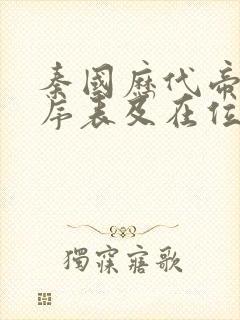 秦國歷代帝
序表及在位
獨寐寤歌